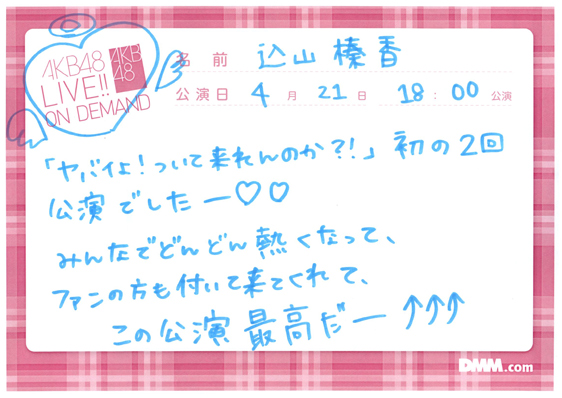 AKB48
LIVE!!
ON DEMAND
AKB
48
名前 込山榛香
公演日 4月21日 18:00公演
「ヤバイよ!ついて来れんのか?!」初の2回
公演でしたー♡♡
みんなでどんどん熱くなって、
ファンの方も付いて来てくれて、
この公演最高だー↑↑↑
DMM.com